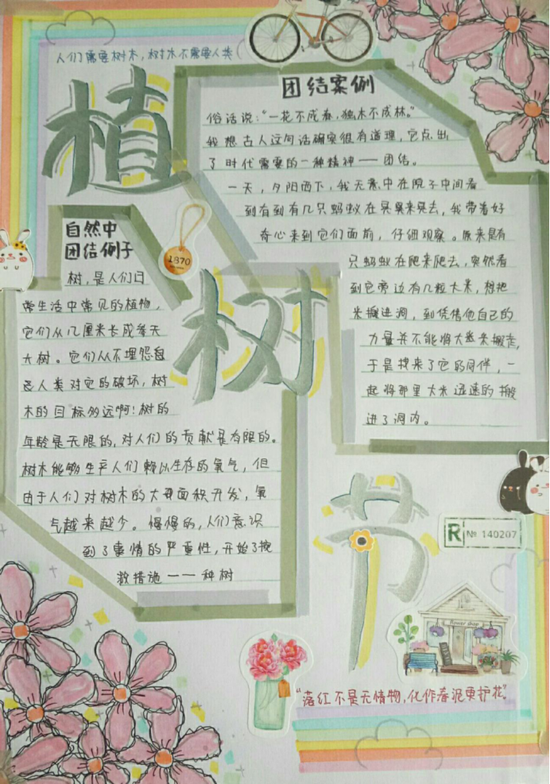 人们需要树木，树木不需要人类
植
树
节
团结案例
俗话说："一花不成春，独木不成林。"
我想古人这句话确实很有道理，它点出
了时代需要的一种精神——团结。
一天，夕阳西下，我无意中在院子中间看
到有到有几只蚂蚁在晃来晃去，我带着好
奇心来到它们面前，仔细观察。原来是有
只蚂蚁在爬来爬去，突然看
到它旁边有几粒大米，想把
米搬进洞，到凭借他自己的
力量并不能将大米来搬走，
于是找来了它的同伴，一
起将那里大米迅速的搬
进了洞内。
自然中
团结例子
1870
树，是人们日
常生活中常见的植物，
它们从几厘米长成参天
大树。它们从不埋怨
人类对它的破坏，树
木的目标多远啊！树的
年龄是无限的，对人们的贡献是有限的。
树木能够生产人们赖以生存的氧气，但
由于人们对树木的大面积开发，氧
气越来越少。慢慢的，人们意识
到了事情的严重性，开始了挽
救措施——种树
R № 140207
Flower shop
"落红不是无情物，化作春泥更护花"